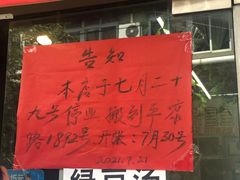 告知
本店于七月二十
九号停业 搬到平凉
路1892号.开张：7月30号
2021.7.21
绿豆汤